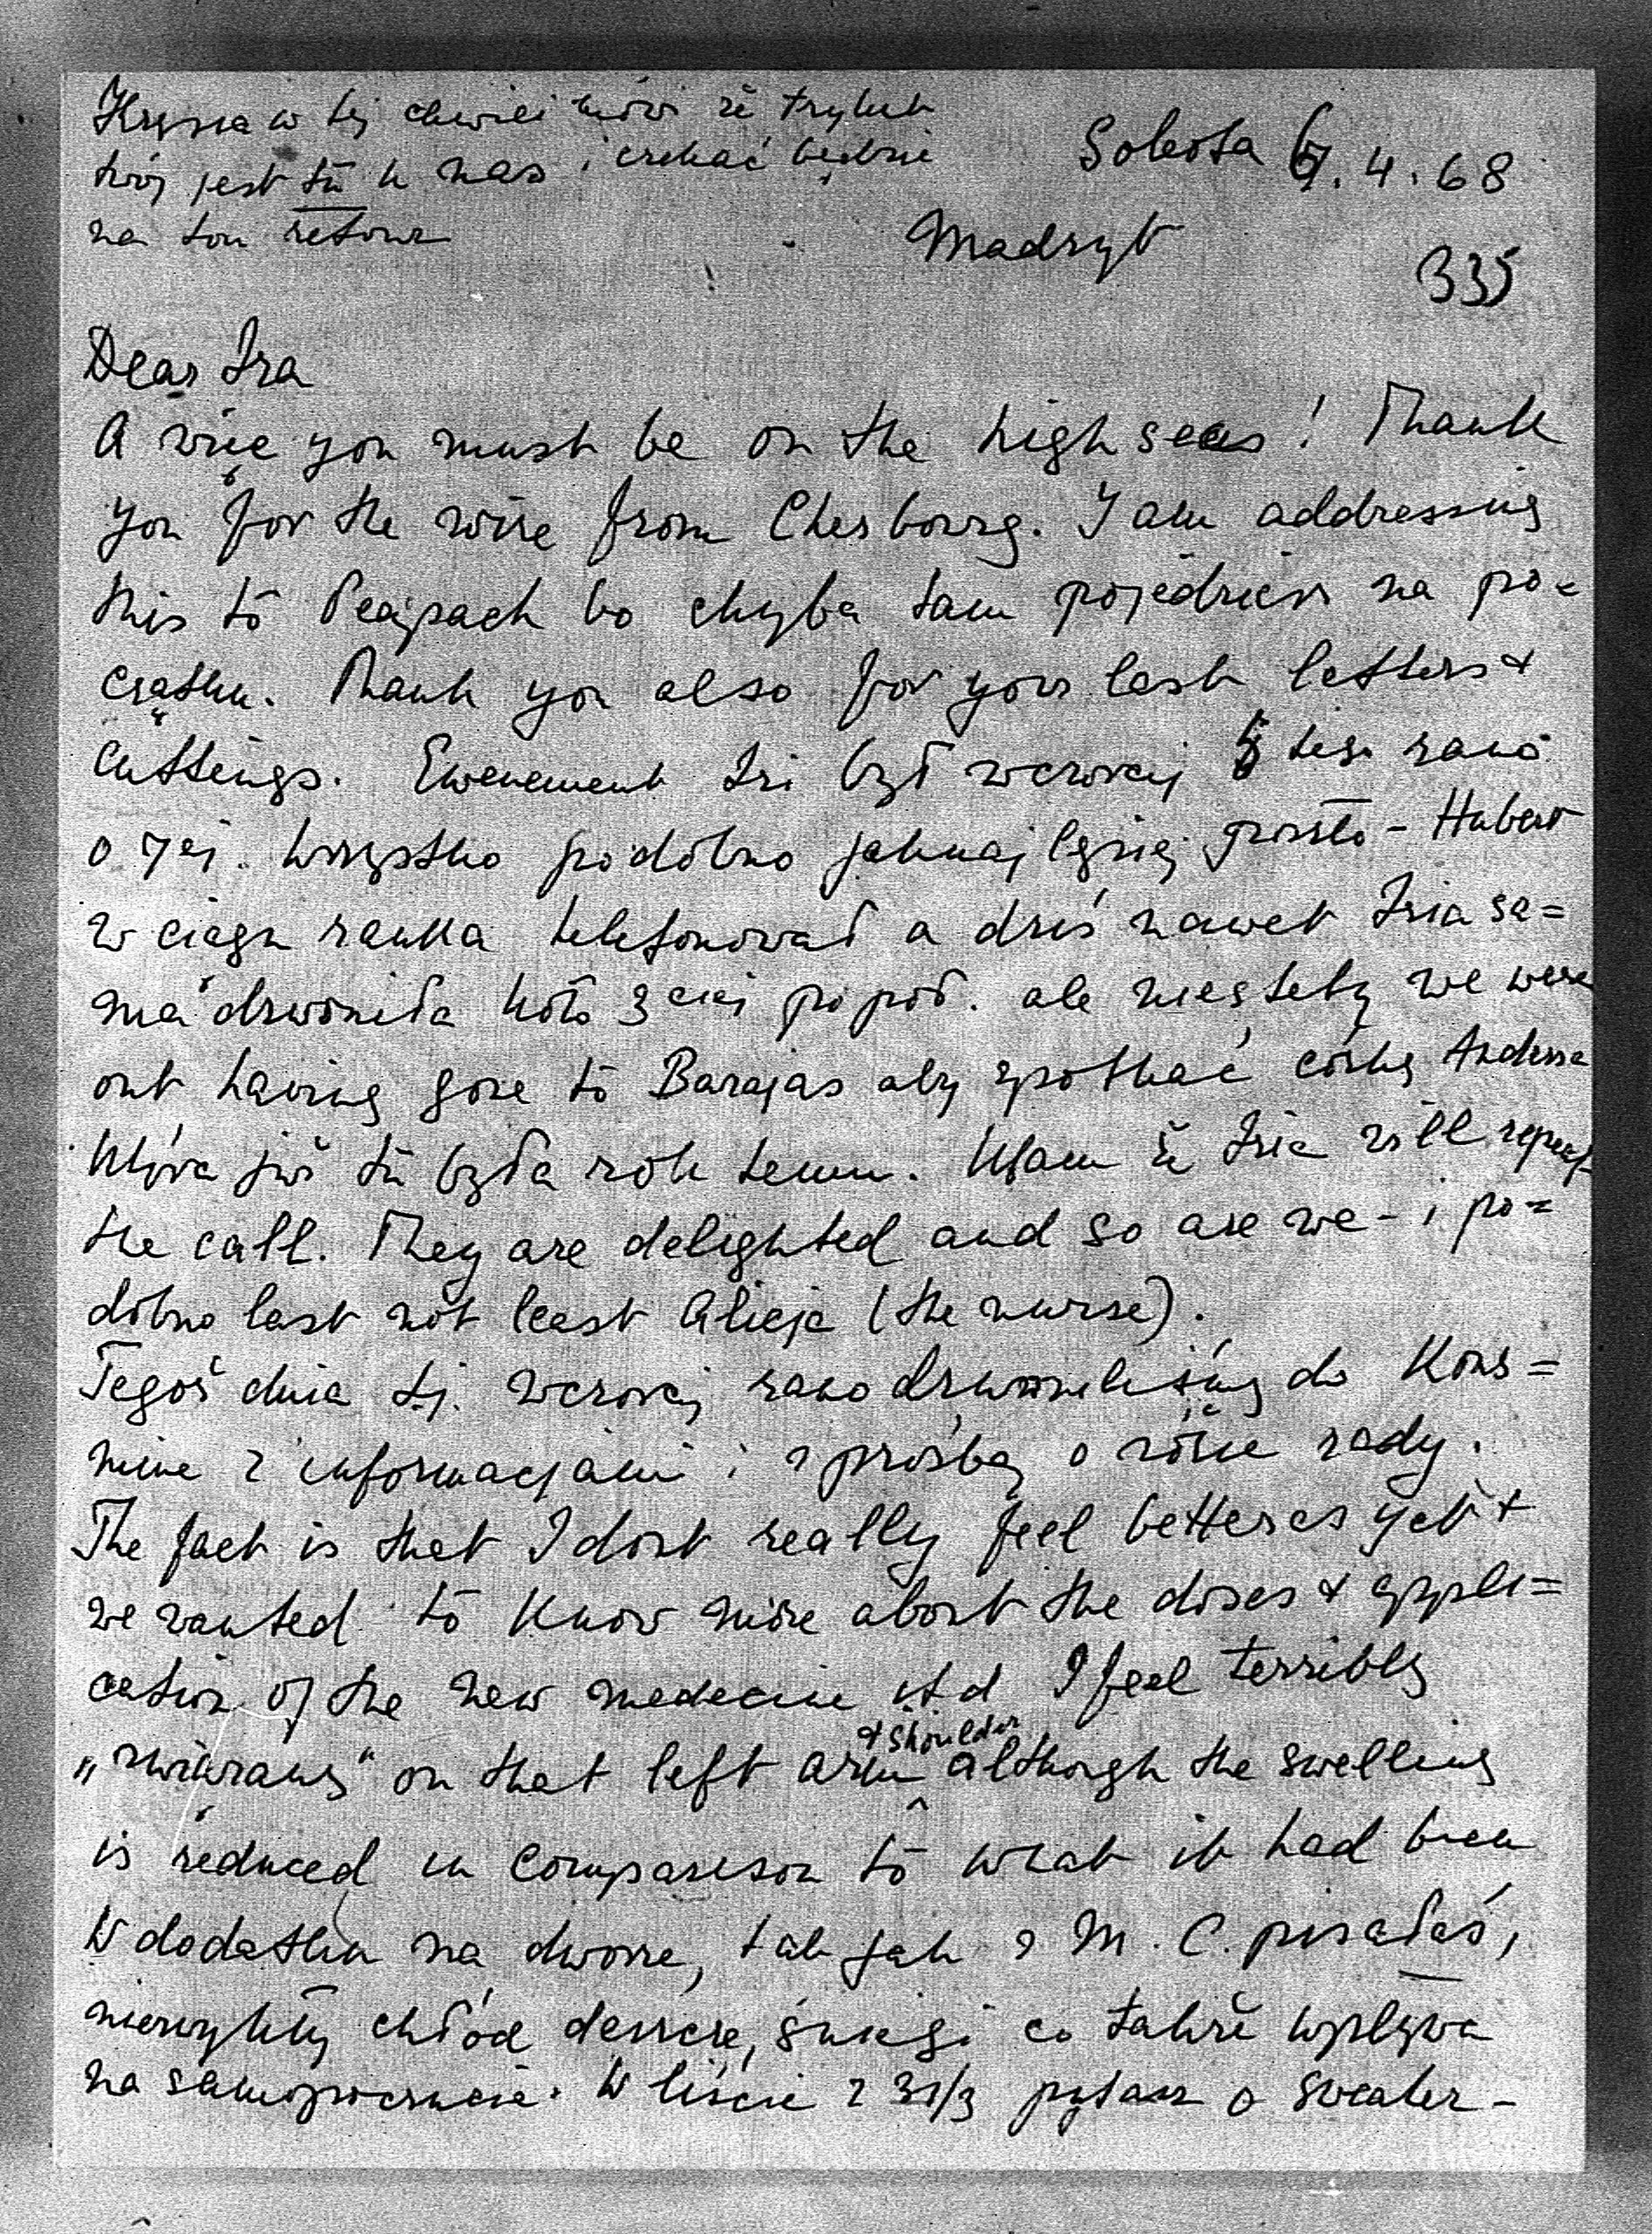 Krysia w tej chwili mówi że trylub
twój jest tu u nas i czekać będzie
na ton retour
Sobota 6.4.68
Madryt
335
Dear Ira
A więc you must be on the high seas! Thank
you for the wire from Cherbourg. I am addressing
this to Peapack bo chyba tam pojedziesz na po=
czątku. Thank you also for your last letters &
cuttings. Ewenement Izi był wczoraj 5 tego rano
o 7ej. Wszystko podobno jaknajlepiej poszło - Hubert
w ciągu ranka telefonował a dziś nawet Izia sa=
ma dzwoniła koło 3ciej popoł. ale niestety we were
out having gone to Barajas aby spotkać córkę Andersa
która już tu była rok temu. Ufam że Izia will repeat
the call. They are delighted and so are we - i po=
dobno last not least Alicja (the nurse).
Tegoż dnia tj. wczoraj rano dzwoniliśmy do Kons=
mine z informacjami i z prośbą o różne rady.
The fact is that I dont really feel better as yet &
we wanted to know more about the doses & appli=
cation of the new medecine itd I feel terribly
on that left arm & shoulder although the swelling
is reduced in comparison to what it had been
W dodatku na dworze, tak jak z M.C. pisałaś,
niezwykły chłód deszcze, śniegi co także wpływa
na samopoczucie. W liście z 31/3 pytasz o sweater -